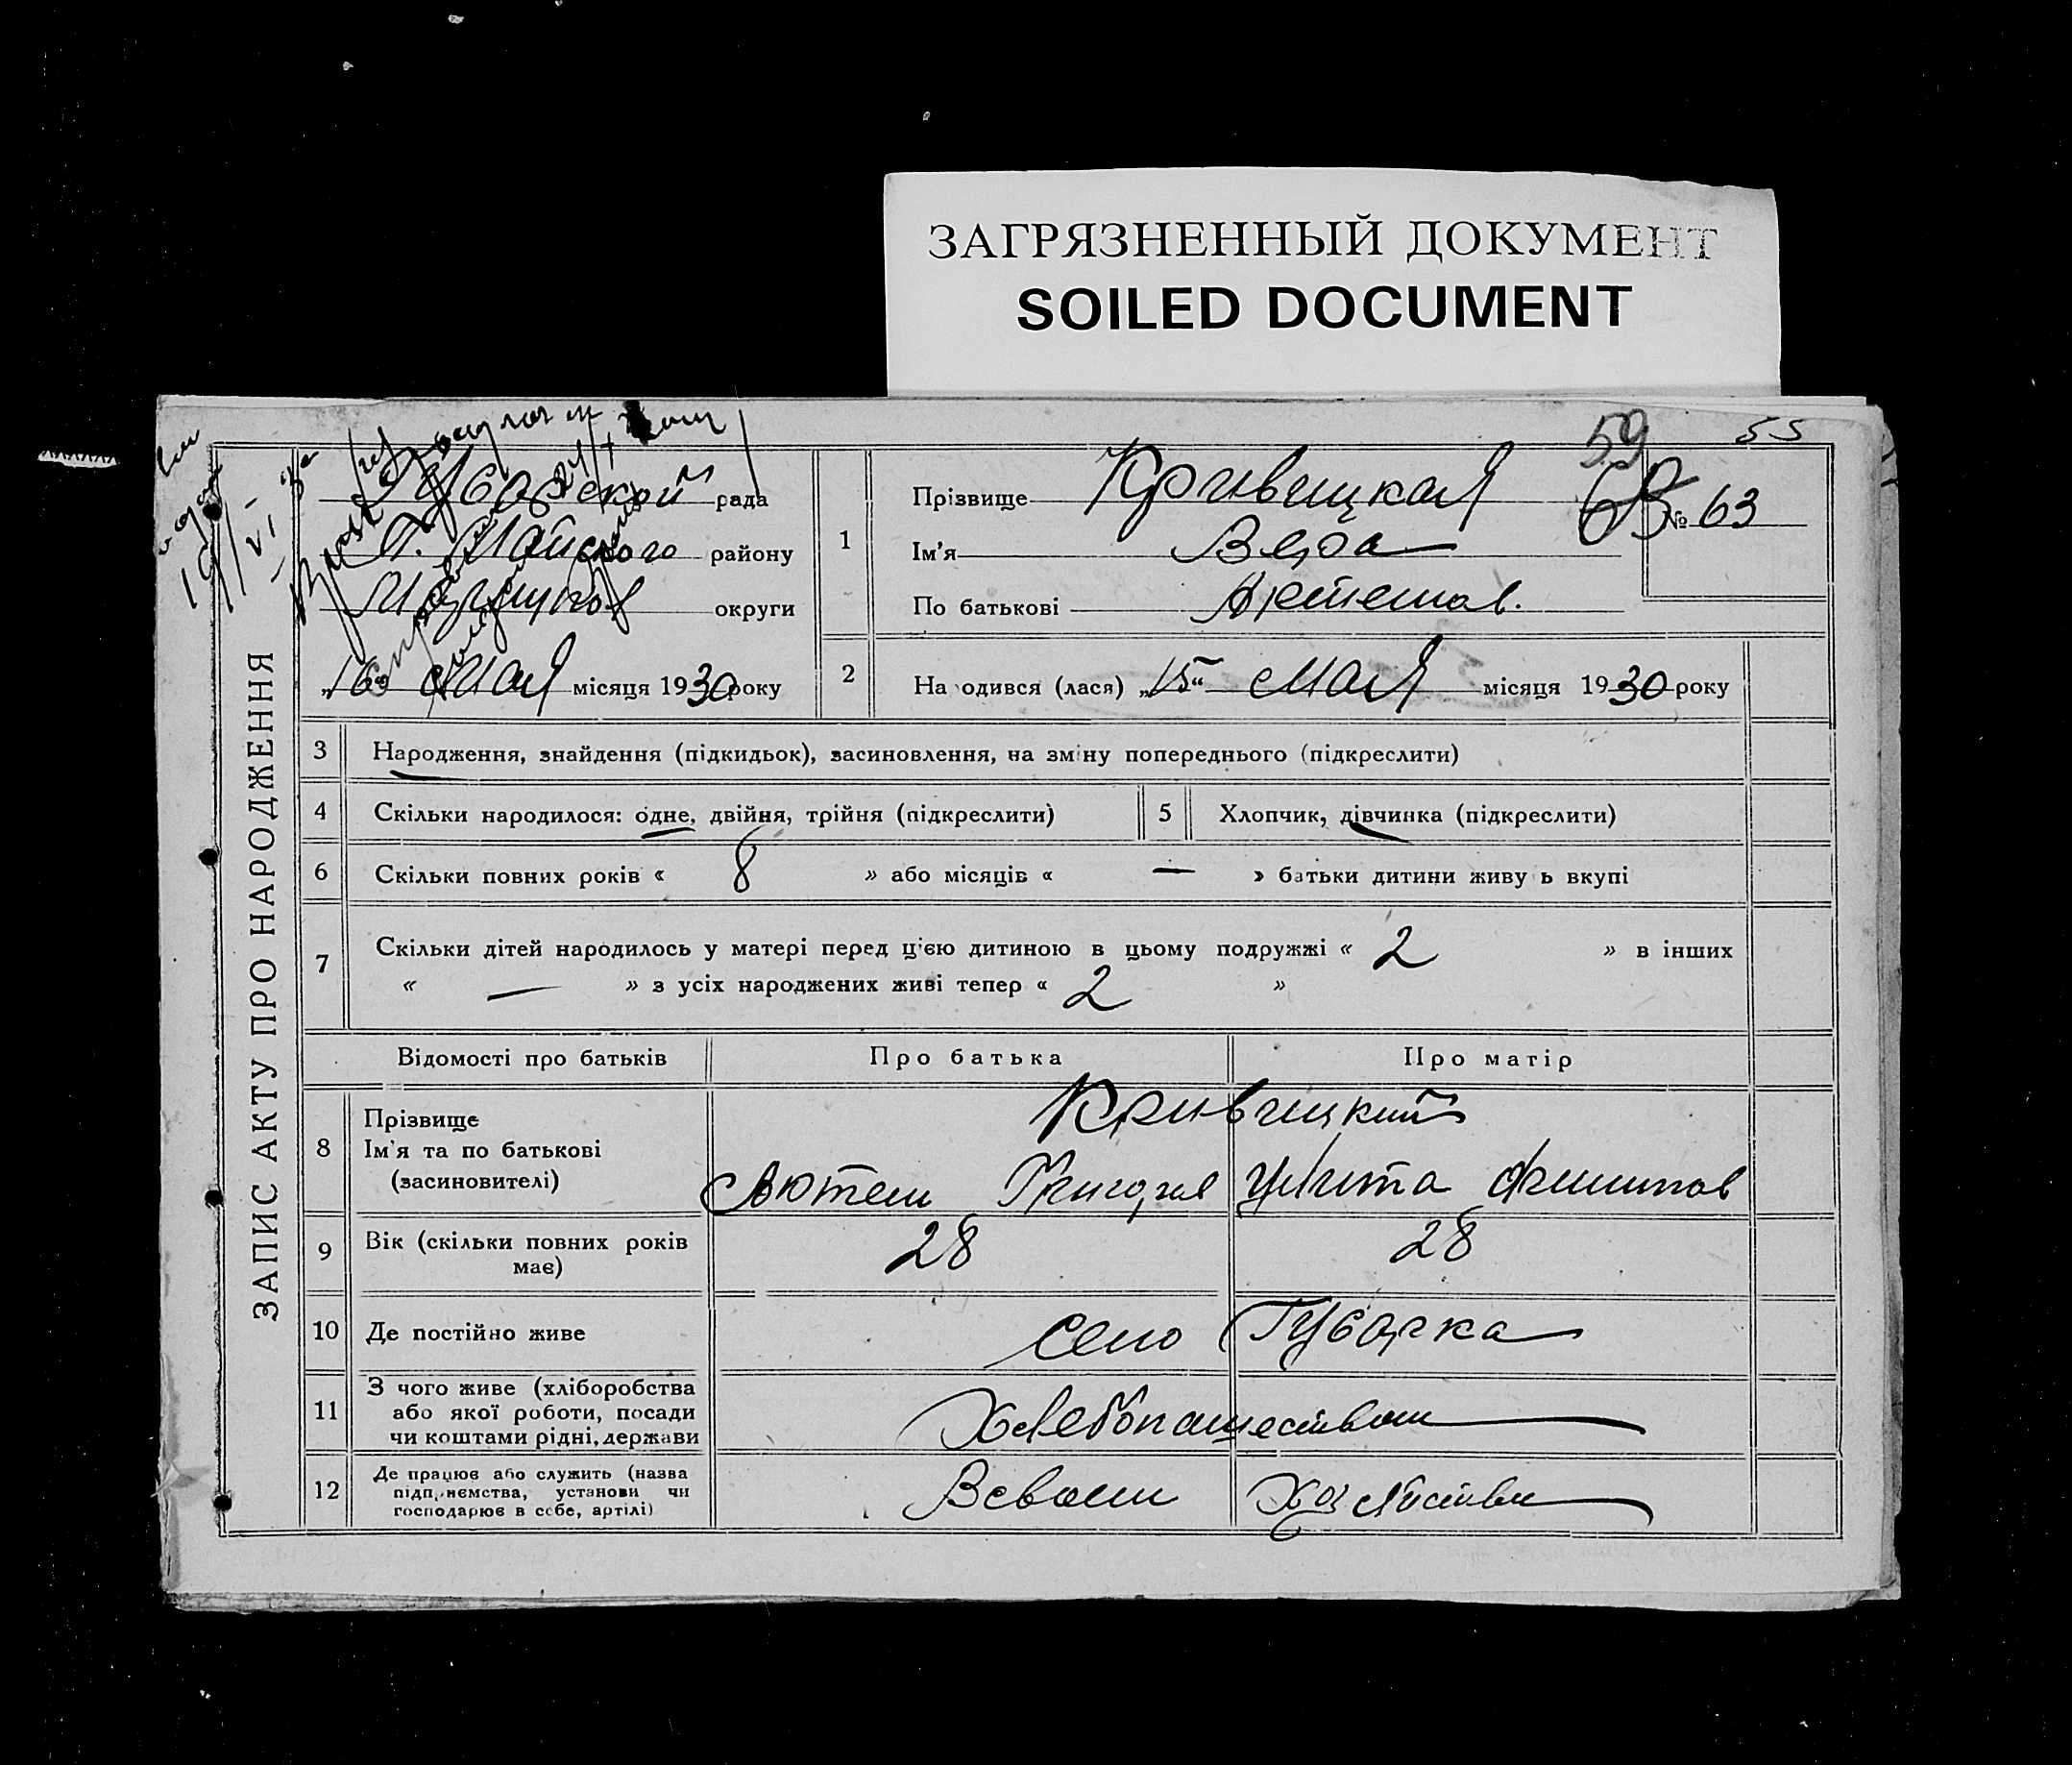 ЗАГРЯЗНЕННЫЙ ДОКУМЕНТ
SOILED DOCUMENT
59 55
ЗАПИС АКТУ ПРО НАРОДЖЕННЯ
рада
П. Майского району
округи
„16“ Мая місяця 1930 року
1 Прізвище Кривицкая
№ 63
Ім'я Вера
По батькові Артемов.
2 На одився (лася) „15“ Мая місяця 1930 року
3 Народження, знайдення (підкидьок), засиновлення, на зміну попереднього (підкреслити)
4 Скільки народилося: одне, двійня, трійня (підкреслити) 5 Хлопчик, дівчинка (підкреслити)
6 Скільки повних років « 8 » або місяців « — » батьки дитини живу ь вкупі
7 Скільки дітей народилось у матері перед ц'єю дитиною в цьому подружжі « 2 » в інших
« — » з усіх народжених живі тепер « 2 »
Відомості про батьків Про батька Про матір
8 Прізвище Кривицкий
Ім'я та по батькові
(засиновителі) Артем Григорев Филипов
9 Вік (скільки повних років має) 28 28
10 Де постійно живе село Губарка
11 З чого живе (хліборобства
або якої роботи, посади
чи коштами рідні, держави Хлебопашеством
12 Де працює або служить (назва
підп.иємства, установи чи
господарює в себе, артілі) Всвоем Хозяйстве